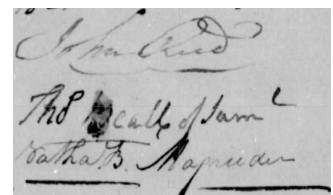 John Reid
Tho§ Beall of Sam^l
Natha B. Magruder